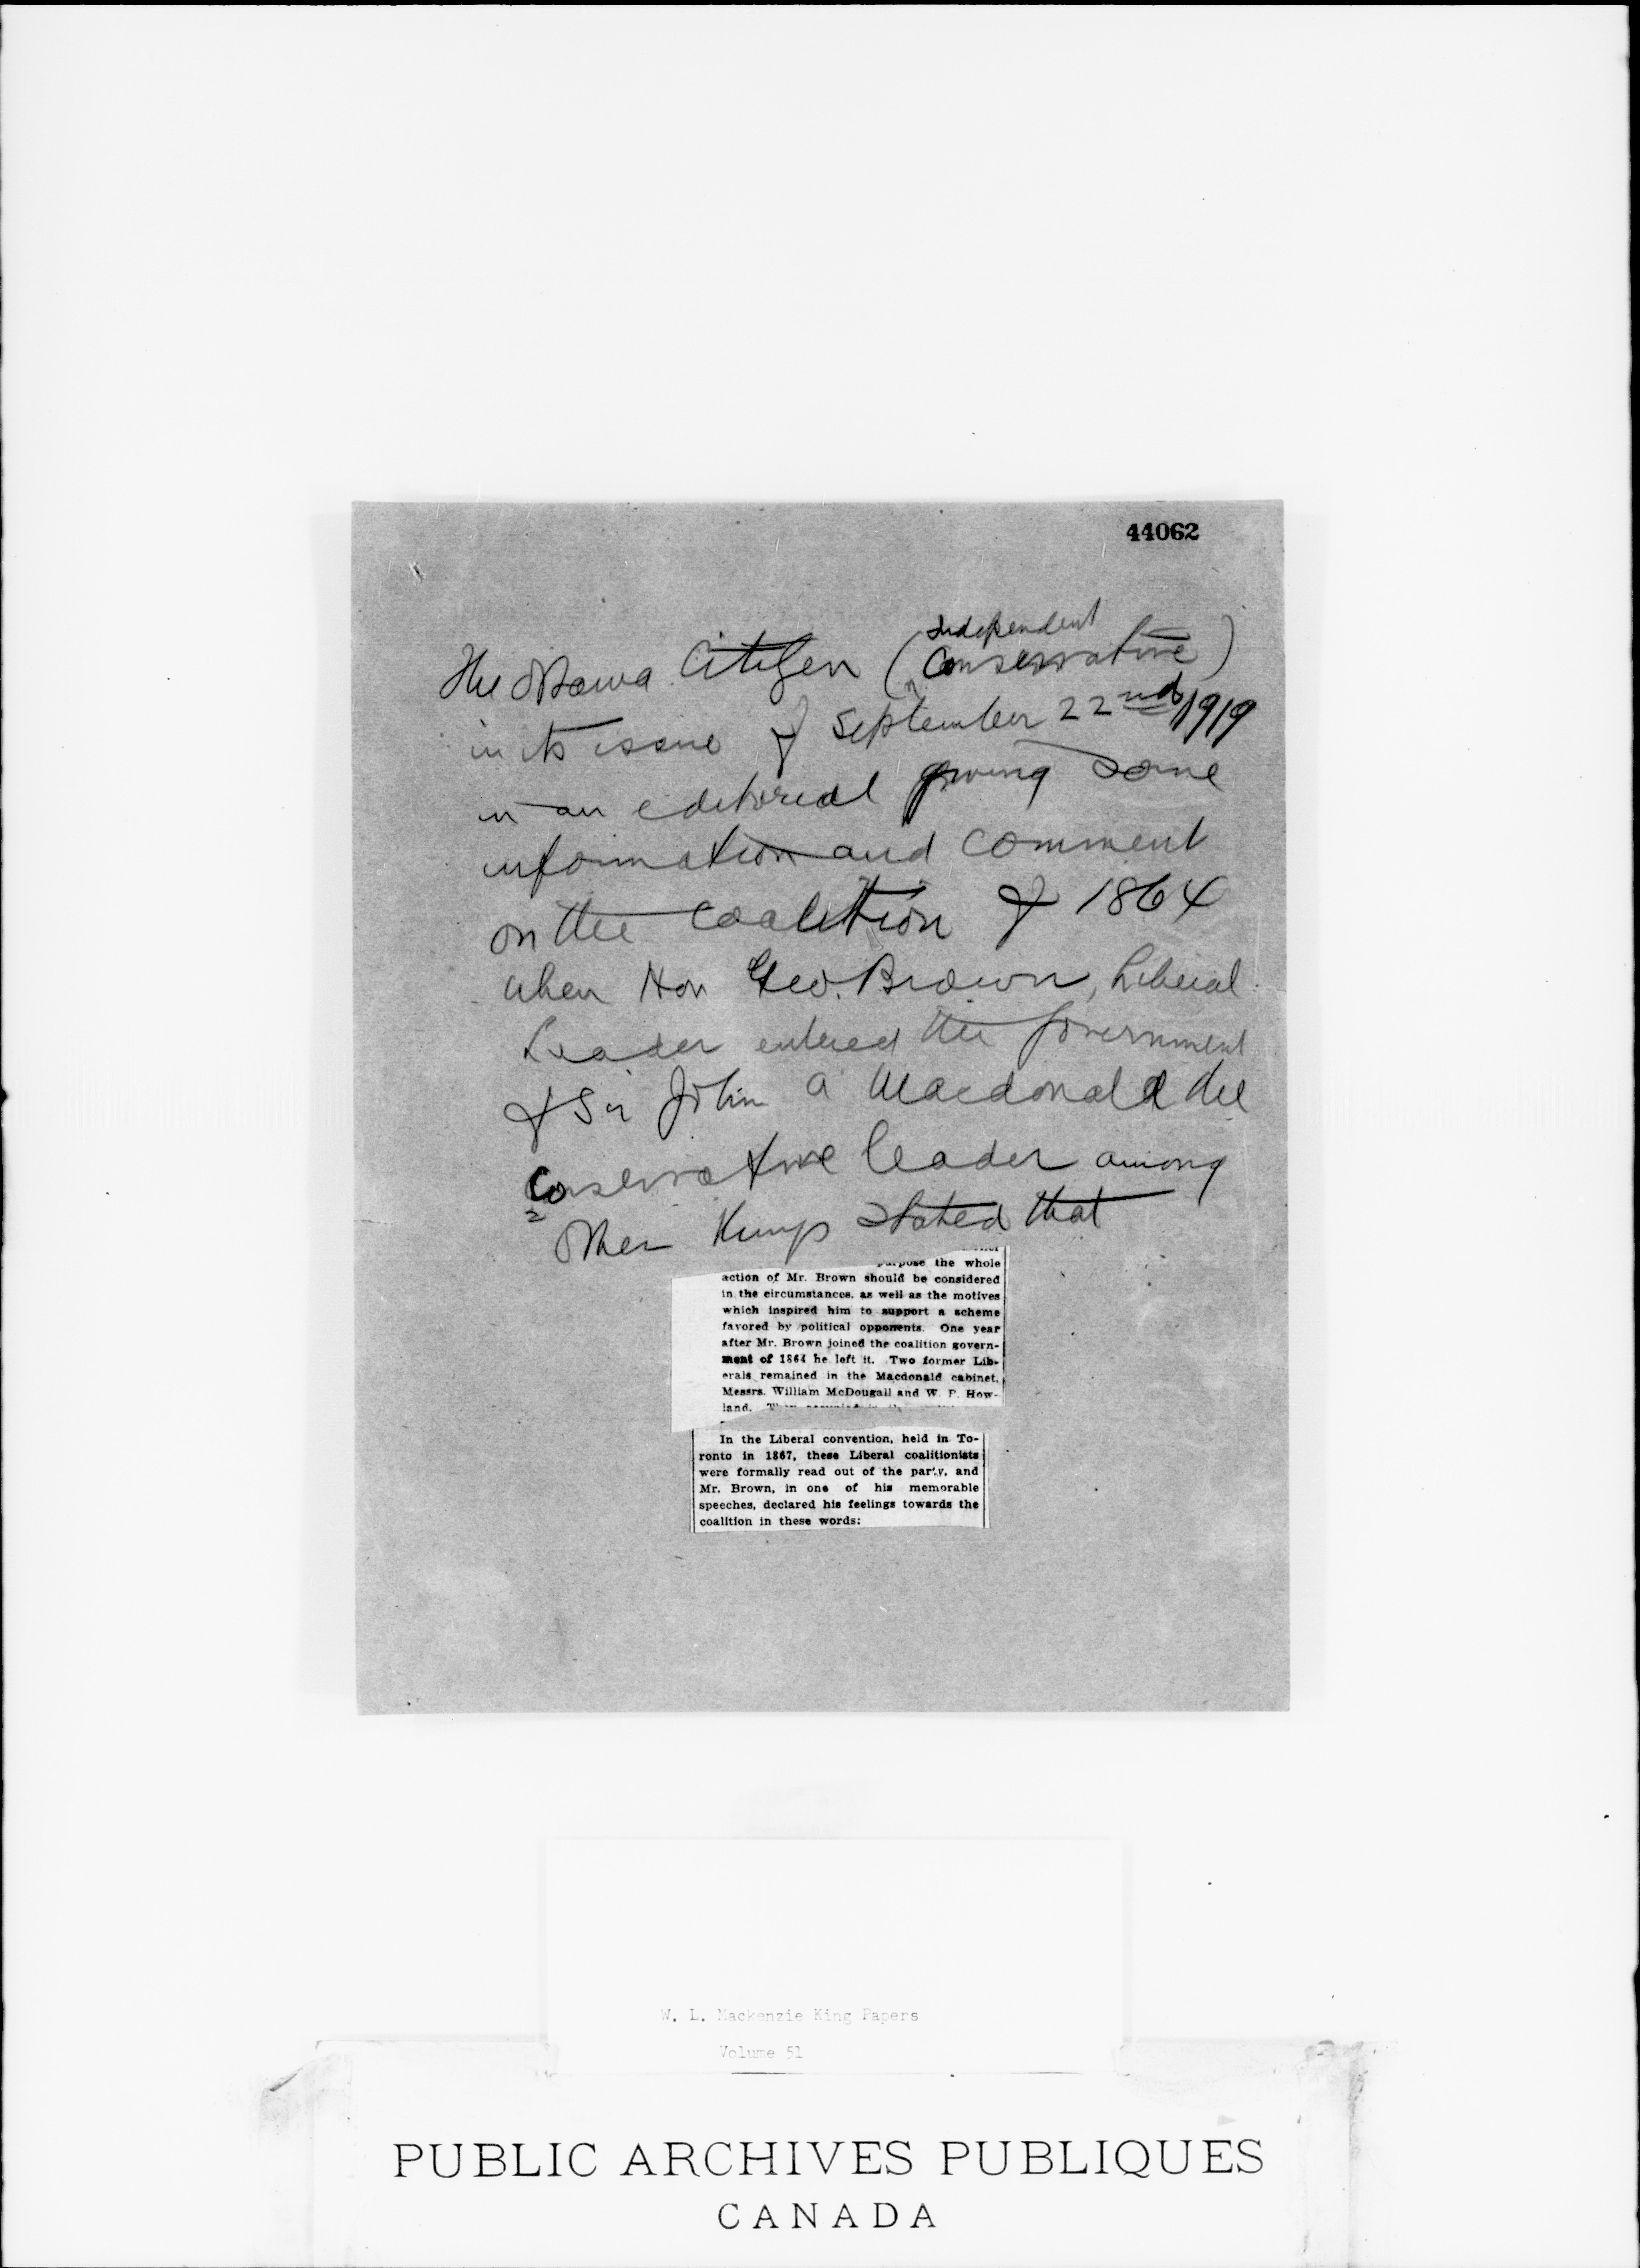 44062
Independent
The Ottawa Citizen (Conservative)
in its issue of September 22nd, 1919
in an editorial giving some
information and comment
on the coalition of 1864
when Hon Geo. Brown, Liberal
Leader entered the Government
of Sir John A Macdonald the
Conservative leader among
other things stated that
purpose the whole
action of Mr. Brown should be considered
in the circumstances, as well as the motives
which inspired him to support a scheme
favored by political opponents. One year
after Mr. Brown joined the coalition govern-
ment of 1864 he left it. Two former Lib-
erals remained in the Macdonald cabinet,
Messrs. William McDougall and W. P. How-
land.
In the Liberal convention, held in To-
ronto in 1867, these Liberal coalitionists
were formally read out of the party, and
Mr. Brown, in one of his memorable
speeches, declared his feelings towards the
coalition in these words:
W. L. Mackenzie King Papers
Volume 51
PUBLIC ARCHIVES PUBLIQUES
CANADA